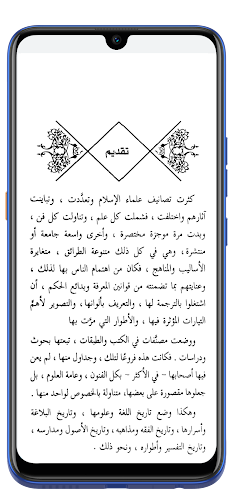 تقديم
كثرت تصانيف علماء الإسلام وتعدَّدت ، وتباينت
آثارهم واختلفت ، فشملت كل علم ، وتناولت كل فن ،
وبدت مرة موجزة مختصرة ، وأخرى واسعة جامعة أو
منتشرة، وهي في كل ذلك متنوعة الطرائق ، متغايرة
الأساليب والمناهج ، فكان من اهتمام الناس بها لذلك ،
وعنايتهم بما تضمنته من قوانين المعرفة وبدائع الحكم ، أن
اشتغلوا بالترجمة لها ، والتعريف بألوانها ، والتصوير لأهمِّ
التيارات المؤثرة فيها ، والأطوار التي مرَّت بها
ووضعت مصنَّفات في الكتب والطبقات ، تبعتها بحوث
ودراسات . فكانت هذه فروعًا لتلك ، وجداول منها ، لم يعن
فيها أصحابها – في الأكثر – بكل الفنون ، وعامة العلوم ، بل
جعلوها مقصورة على بعضها، متناولة بالخصوص لواحد منها .
وهكذا وضع تاريخ اللغة وعلومها ، وتاريخ البلاغة
وأسرارها ، وتاريخ الفقه ومذاهبه ، وتاريخ الأصول ومدارسه ،
وتاريخ التفسير وأطواره ، ونحو ذلك .